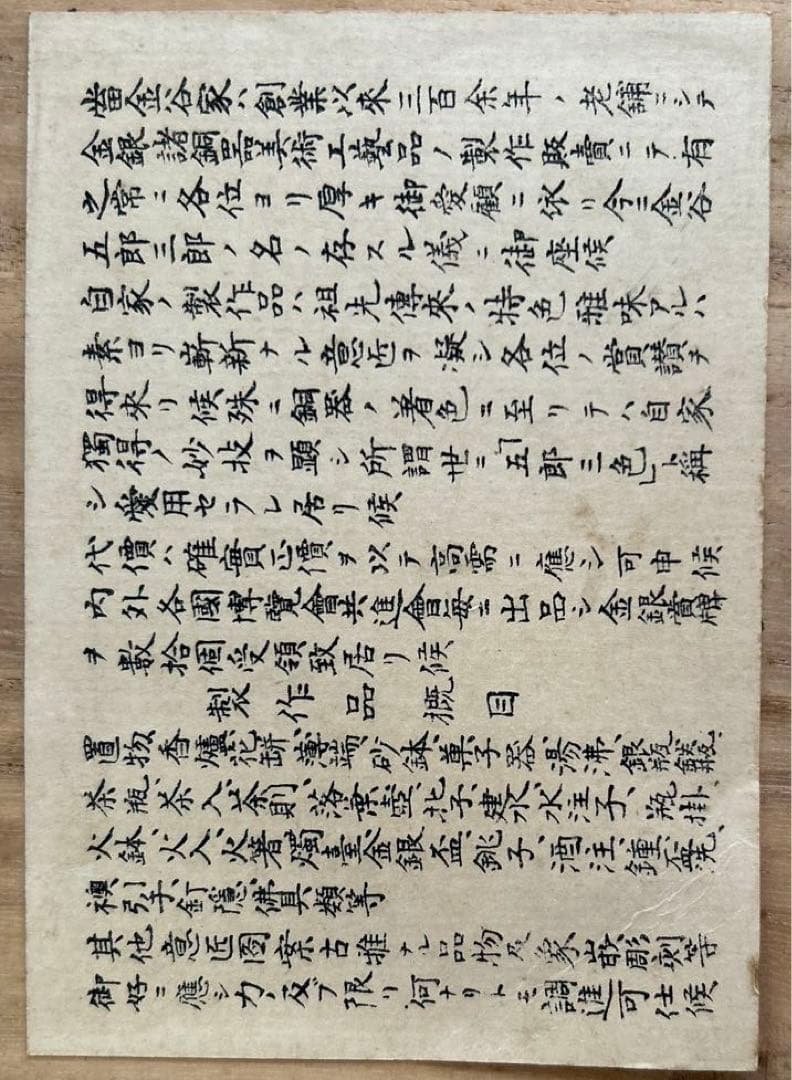 當金谷家ハ創業以來三百余年ノ老舗ニシテ
金銀諸銅器美術工藝品ノ製作販賣ニテ有
之常ニ各位ヨリ厚キ御愛顧ニ依リ今ニ金谷
五郎三郎ノ名ノ存スル儀ニ御座候
自家ノ製作品ハ祖先傳來ノ特色雅味アルハ
素ヨリ嶄新ナル意匠ヲ凝シ各位ノ賞讃ヲ
得來リ候殊ニ銅器ノ着色ニ至リテハ自家
獨得ノ妙技ヲ顕シ所謂世ニ「五郎三色」ト稱
シ愛用セラレ居リ候
代價ハ確實正價ヲ以テ高需ニ應シ可申候
内外各國博覽會共進會毎ニ出品シ金銀賞牌
ヲ數拾個受領致居リ候
製作品概目
置物、香爐、花缾、薄端、砂鉢、菓子器、湯沸、銀瓶、鉄瓶、
茶瓶、茶入、茶則、落、壺、杓子、建水、水注子、瓶掛、
火鉢、火入、火箸、燭臺、金銀盃、銚子、酒注、鍾、盃洗、
襖引手、釘隱、佛具類等
其他意匠圖案古雅ナル品物及象嵌彫刻等
御好ニ應シ力ノ及ブ限リ何ナリトモ調進可仕候